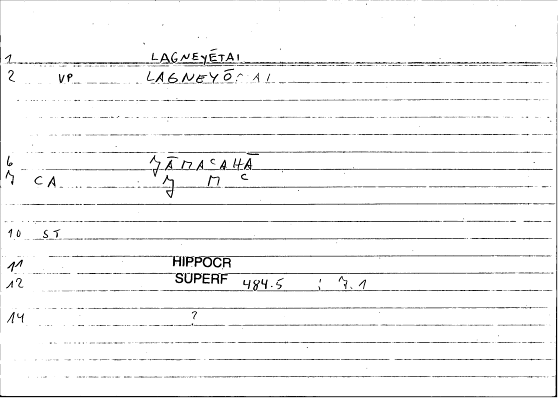 1 LAGNEYĒTAI
2 VP LAGNEYŌ AI
6
7 CA
10 ST
11 HIPPOCR
12 SUPERF 484.5 : 7.1
14 ?